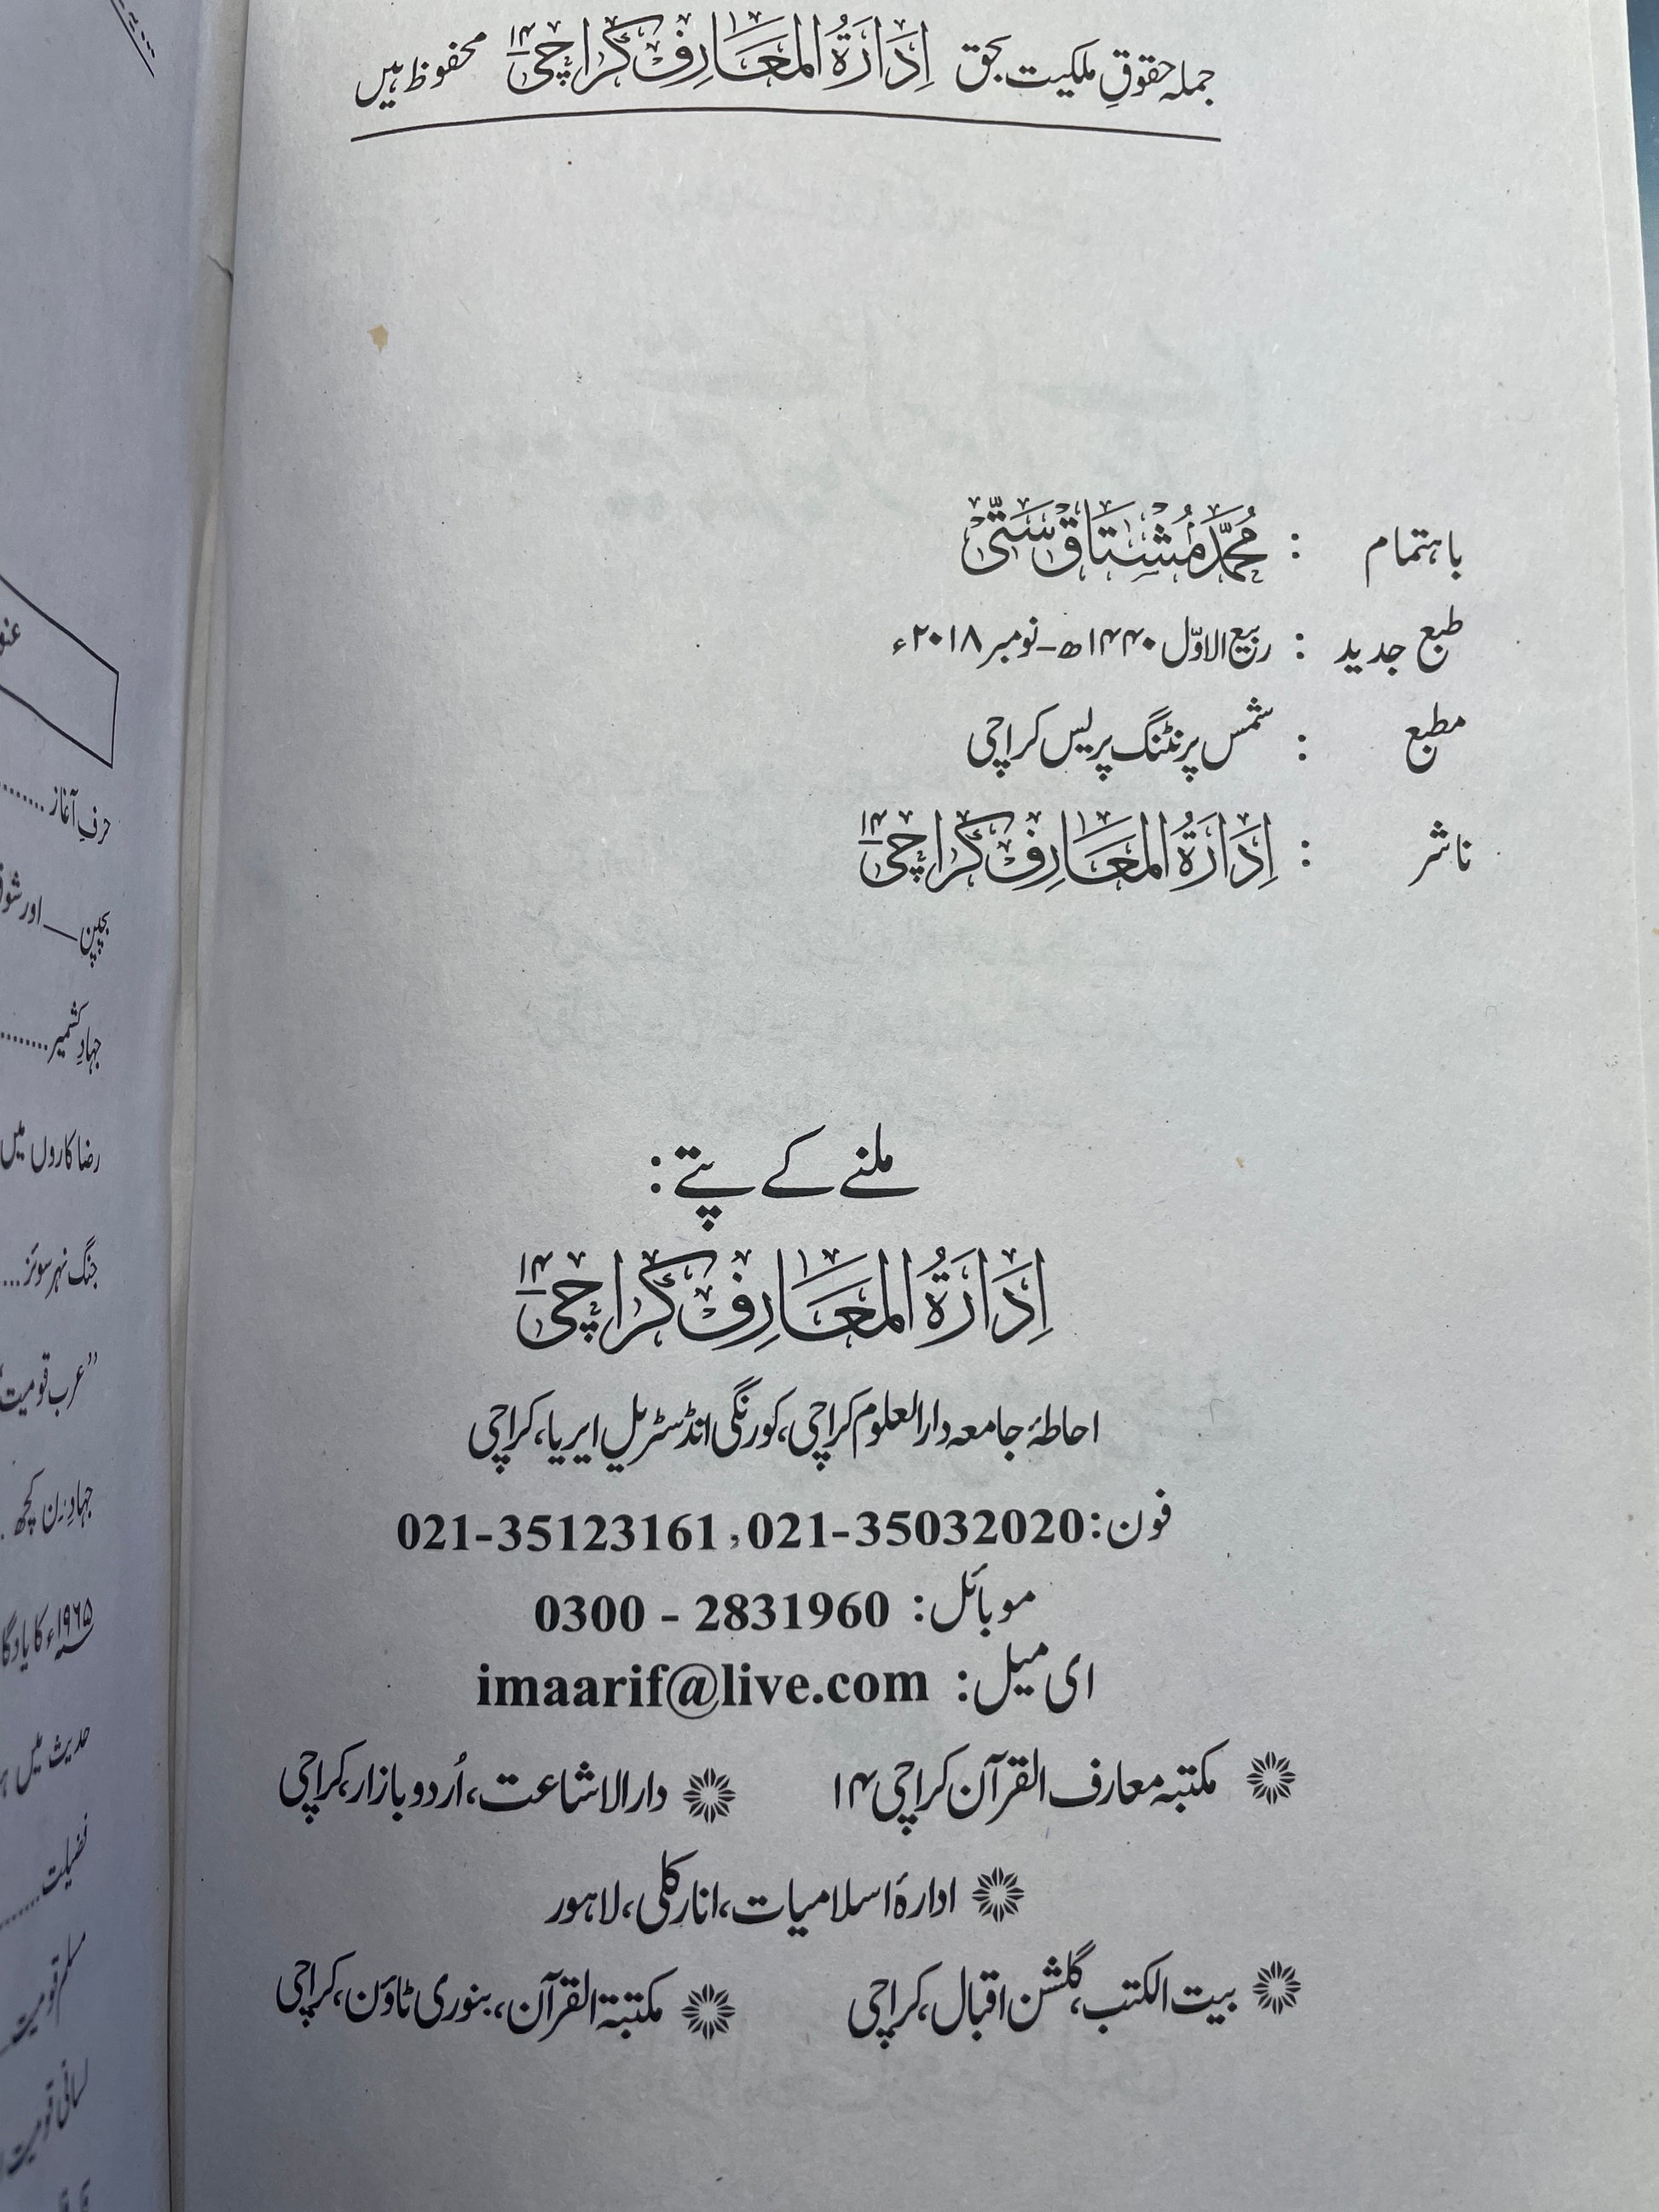 جملہ حقوقِ ملکیت بحق اِدَارَۃُ المَعَارِف کراچی ۱۴ محفوظ ہیں
باہتمام : مُحَمَّد مُشتَاق سَتّی
طبع جدید : ربیع الاوّل ۱۴۴۰ھ - نومبر ۲۰۱۸ء
مطبع : شمس پرنٹنگ پریس کراچی
ناشر : اِدَارَۃُ المَعَارِف کراچی ۱۴
ملنے کے پتے:
اِدَارَۃُ المَعَارِف کراچی ۱۴
احاطۂ جامعہ دارالعلوم کراچی، کورنگی انڈسٹریل ایریا، کراچی
فون: 021-35032020، 021-35123161
موبائل: 0300 - 2831960
ای میل: imaarif@live.com
مکتبہ معارف القرآن کراچی ۱۴
دارالاشاعت، اُردو بازار، کراچی
ادارۂ اسلامیات، انارکلی، لاہور
بیت الکتب، گلشن اقبال، کراچی
مکتبۃ القرآن، بنوری ٹاؤن، کراچی
حرفِ آغاز ........
بچپن — اور شوق
جہادِ کشمیر ........
رضا کاروں میں
جنگ نہر سوئز ...
"عرب قومیت"
جہادِ رَن کچھ .
۱۹۶۵ء کا یادگا
حدیث میں
فضیلت ........
مسلم قومیت
لسانی قومیت